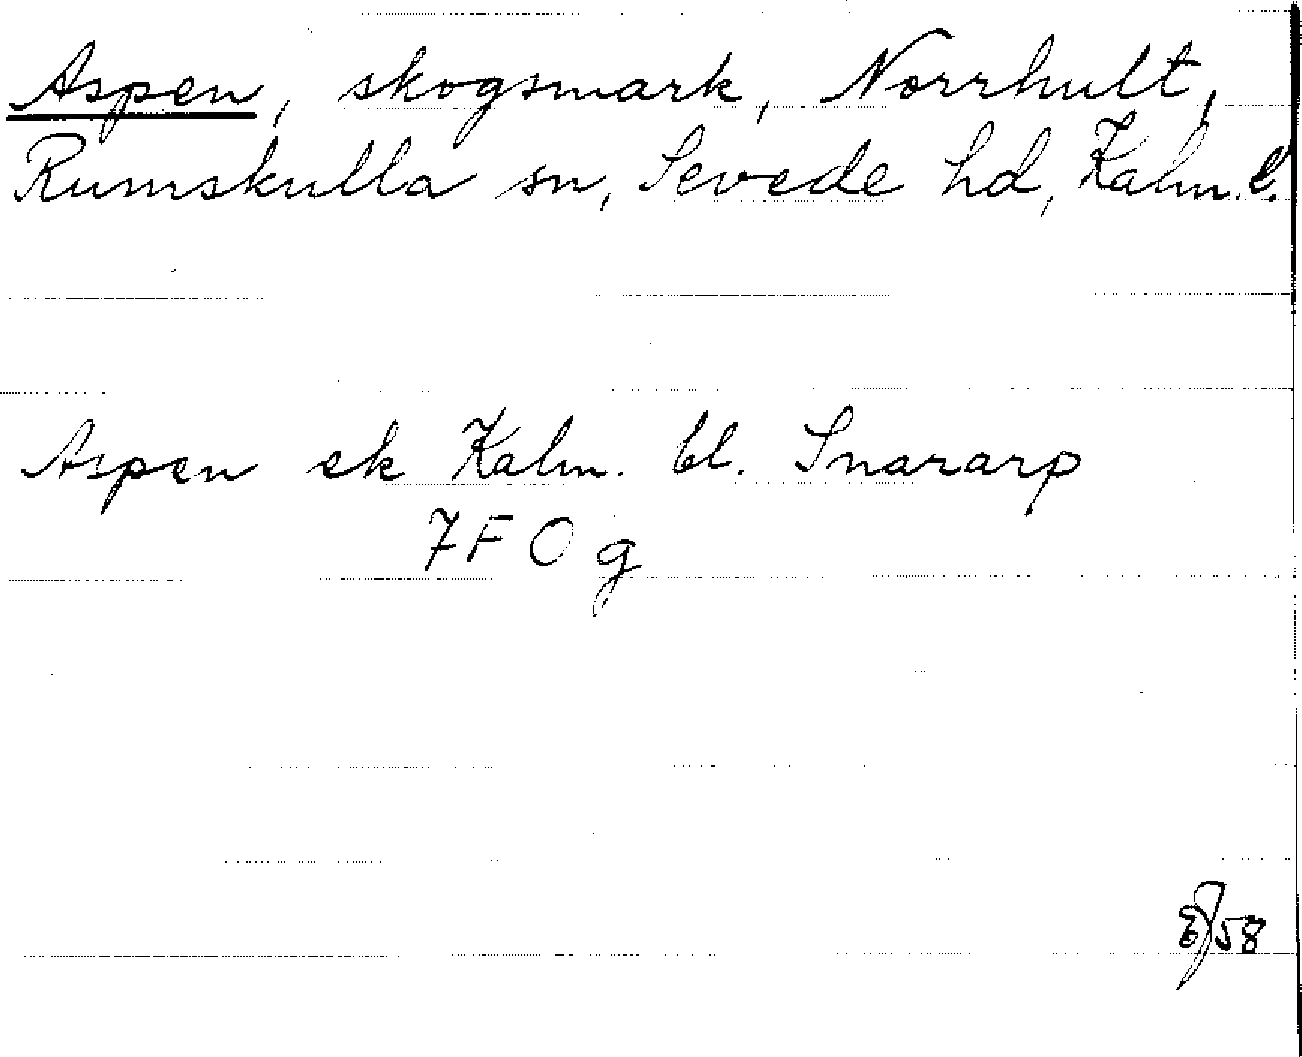 Aspen, skogsmark, Norrhult,
Rumskulla sn, Sevede hd, Kalm. l.
Aspen ek Kalm. bl. Snararp
7F O g